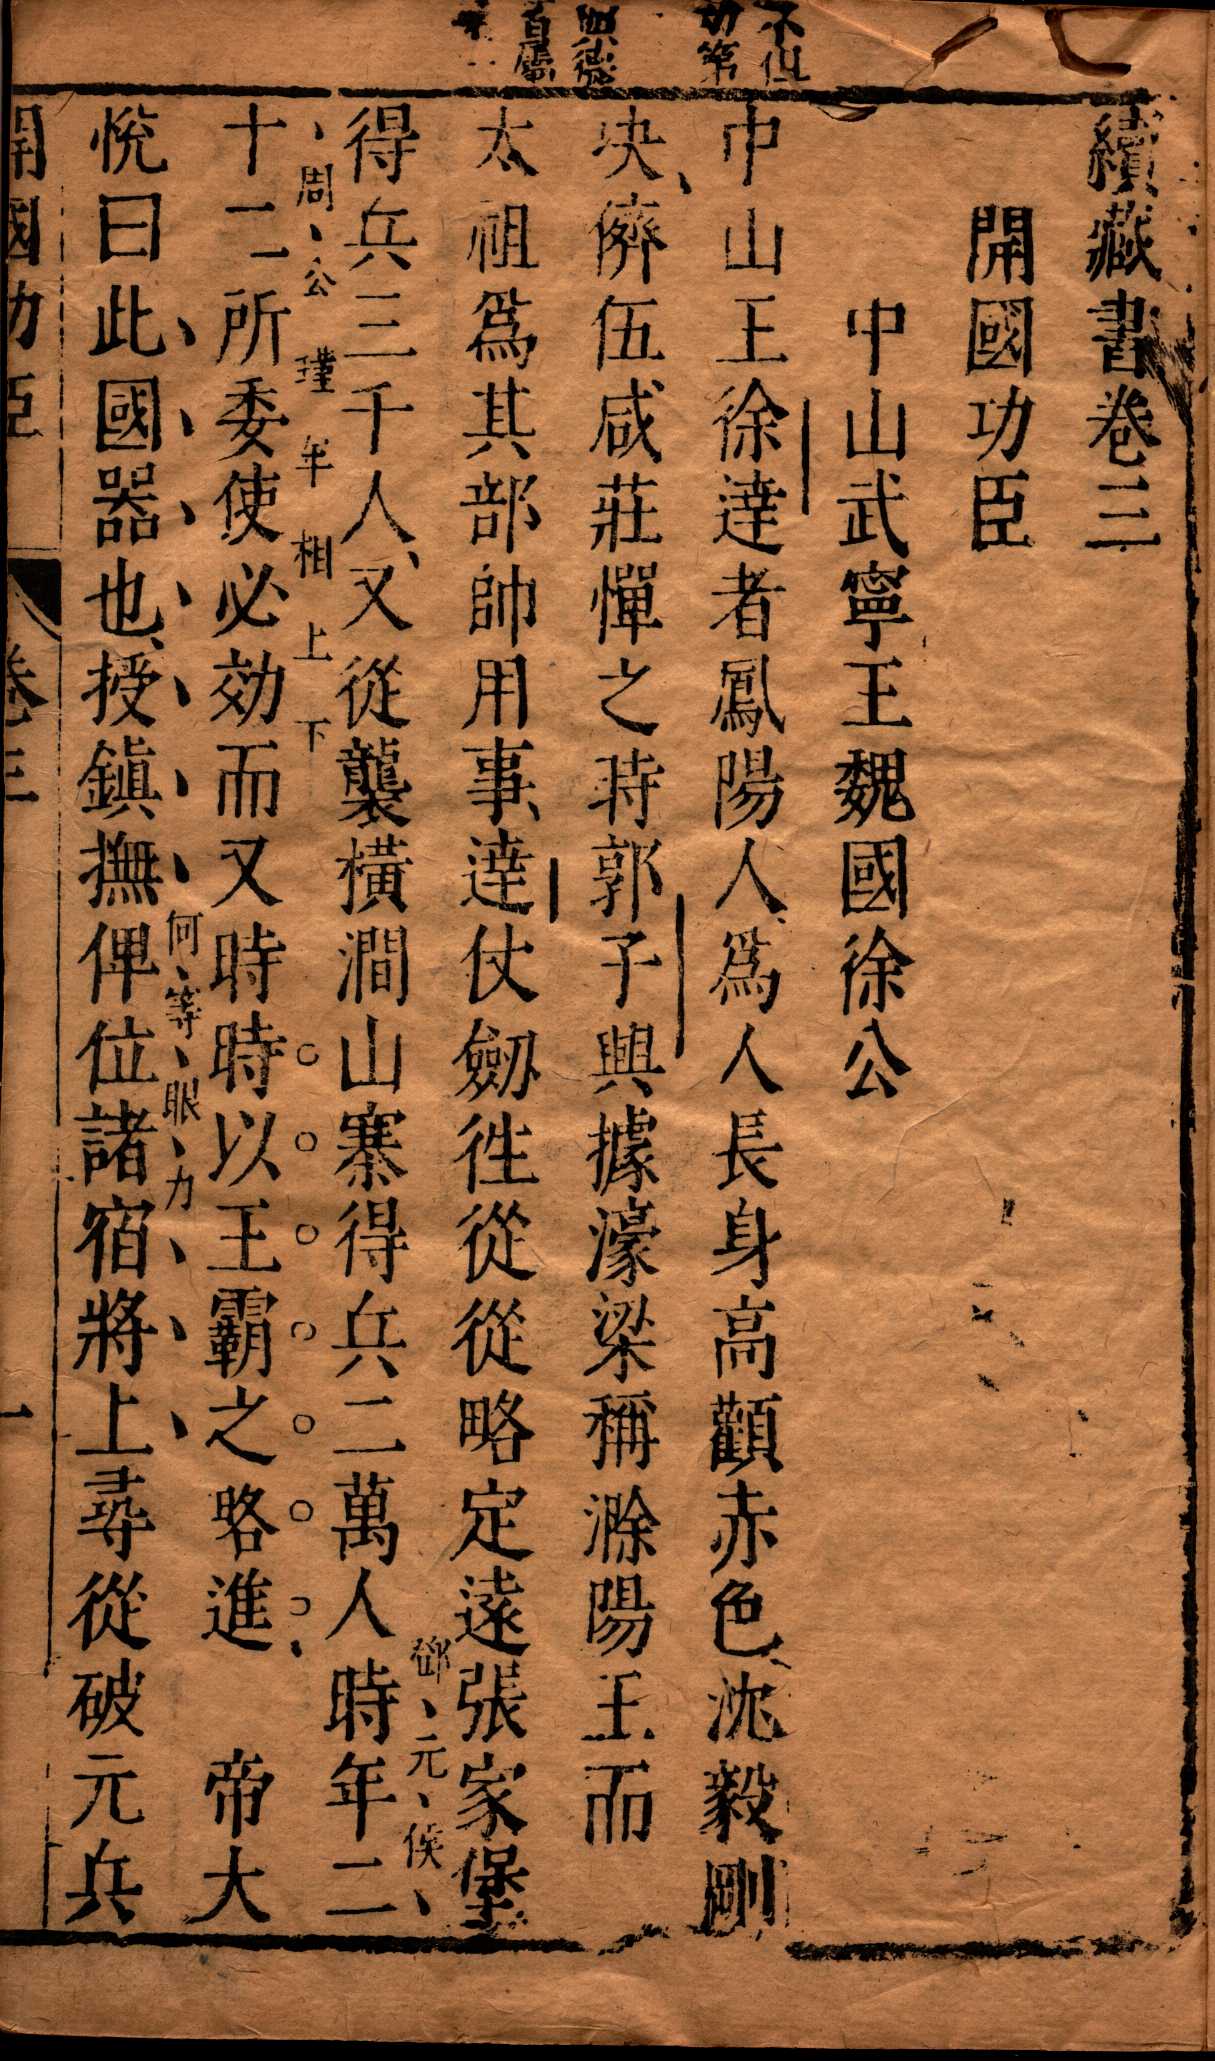 續藏書卷三
開國功臣
中山武寧王魏國徐公
中山王徐達者鳳陽人爲人長身高顴赤色沈毅剛
決儕伍咸莊憚之時郭子興據濠梁稱滁陽王而
太祖爲其部帥用事達仗劔徃從從略定遠張家堡
得兵三千人又從襲橫澗山寨得兵二萬人時年二
鄧元侯
周公瑾年相上下
十二所委使必効而又時時以王霸之略進 帝大
何等眼力
悅曰此國器也授鎮撫俾位諸宿將上尋從破元兵
開國功臣 卷三 一
不但
功第